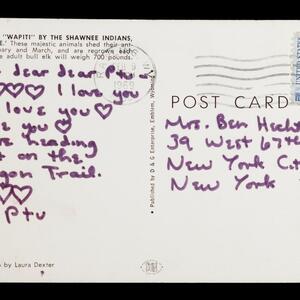 "WAPITI" BY THE SHAWNEE INDIANS,
These majestic animals shed their ant-
uary and March, and are regrown each
e adult bull elk will weigh 700 pounds.
dear dear Ptv
I love you
love you
e you
e heading
t on the
gon Trail.
Ptv
by Laura Dexter
Published by D & G Enterprise, Emblem,
POST CARD
Mrs. Ben Hecht
39 West 67th
New York Cit
New York